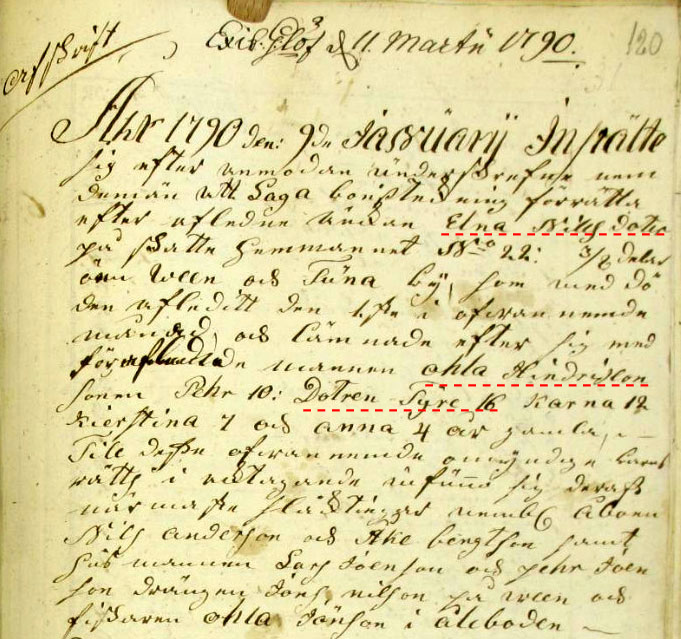 Afskrift
Exib. Glöf d 11. Martii 1790.
120
Ahr 1790 den: 9de Januarij Inrätte
sig efter anmodan underskrefne nem
demän att Laga bouptekning förrätta
efter afledne Enkan Elna Nills Dotro
på skatte Hemmannet No 22: 3/8 delar
öen Ween och Tuna by, som med dö
den afleditt den 1ste i ofvannemde
månad, och lämnade efter sig med
för mannen ohla Hindricson
sonen Pehr 10: Dotren Syre 16 Karna 12
Kierstina 7 och anna 4 år gamla,
Till desse ofvannemde omyndige barns
rätts i aktagande infunno sig deras
närmaste släktingar nembl åboen
Nils anderson och Ake bengtson samt
Husmannen Lars Joenson och pehr Joen
son drängen Jöns nilson på ween och
fiskaren ohla Jönson i åleboden